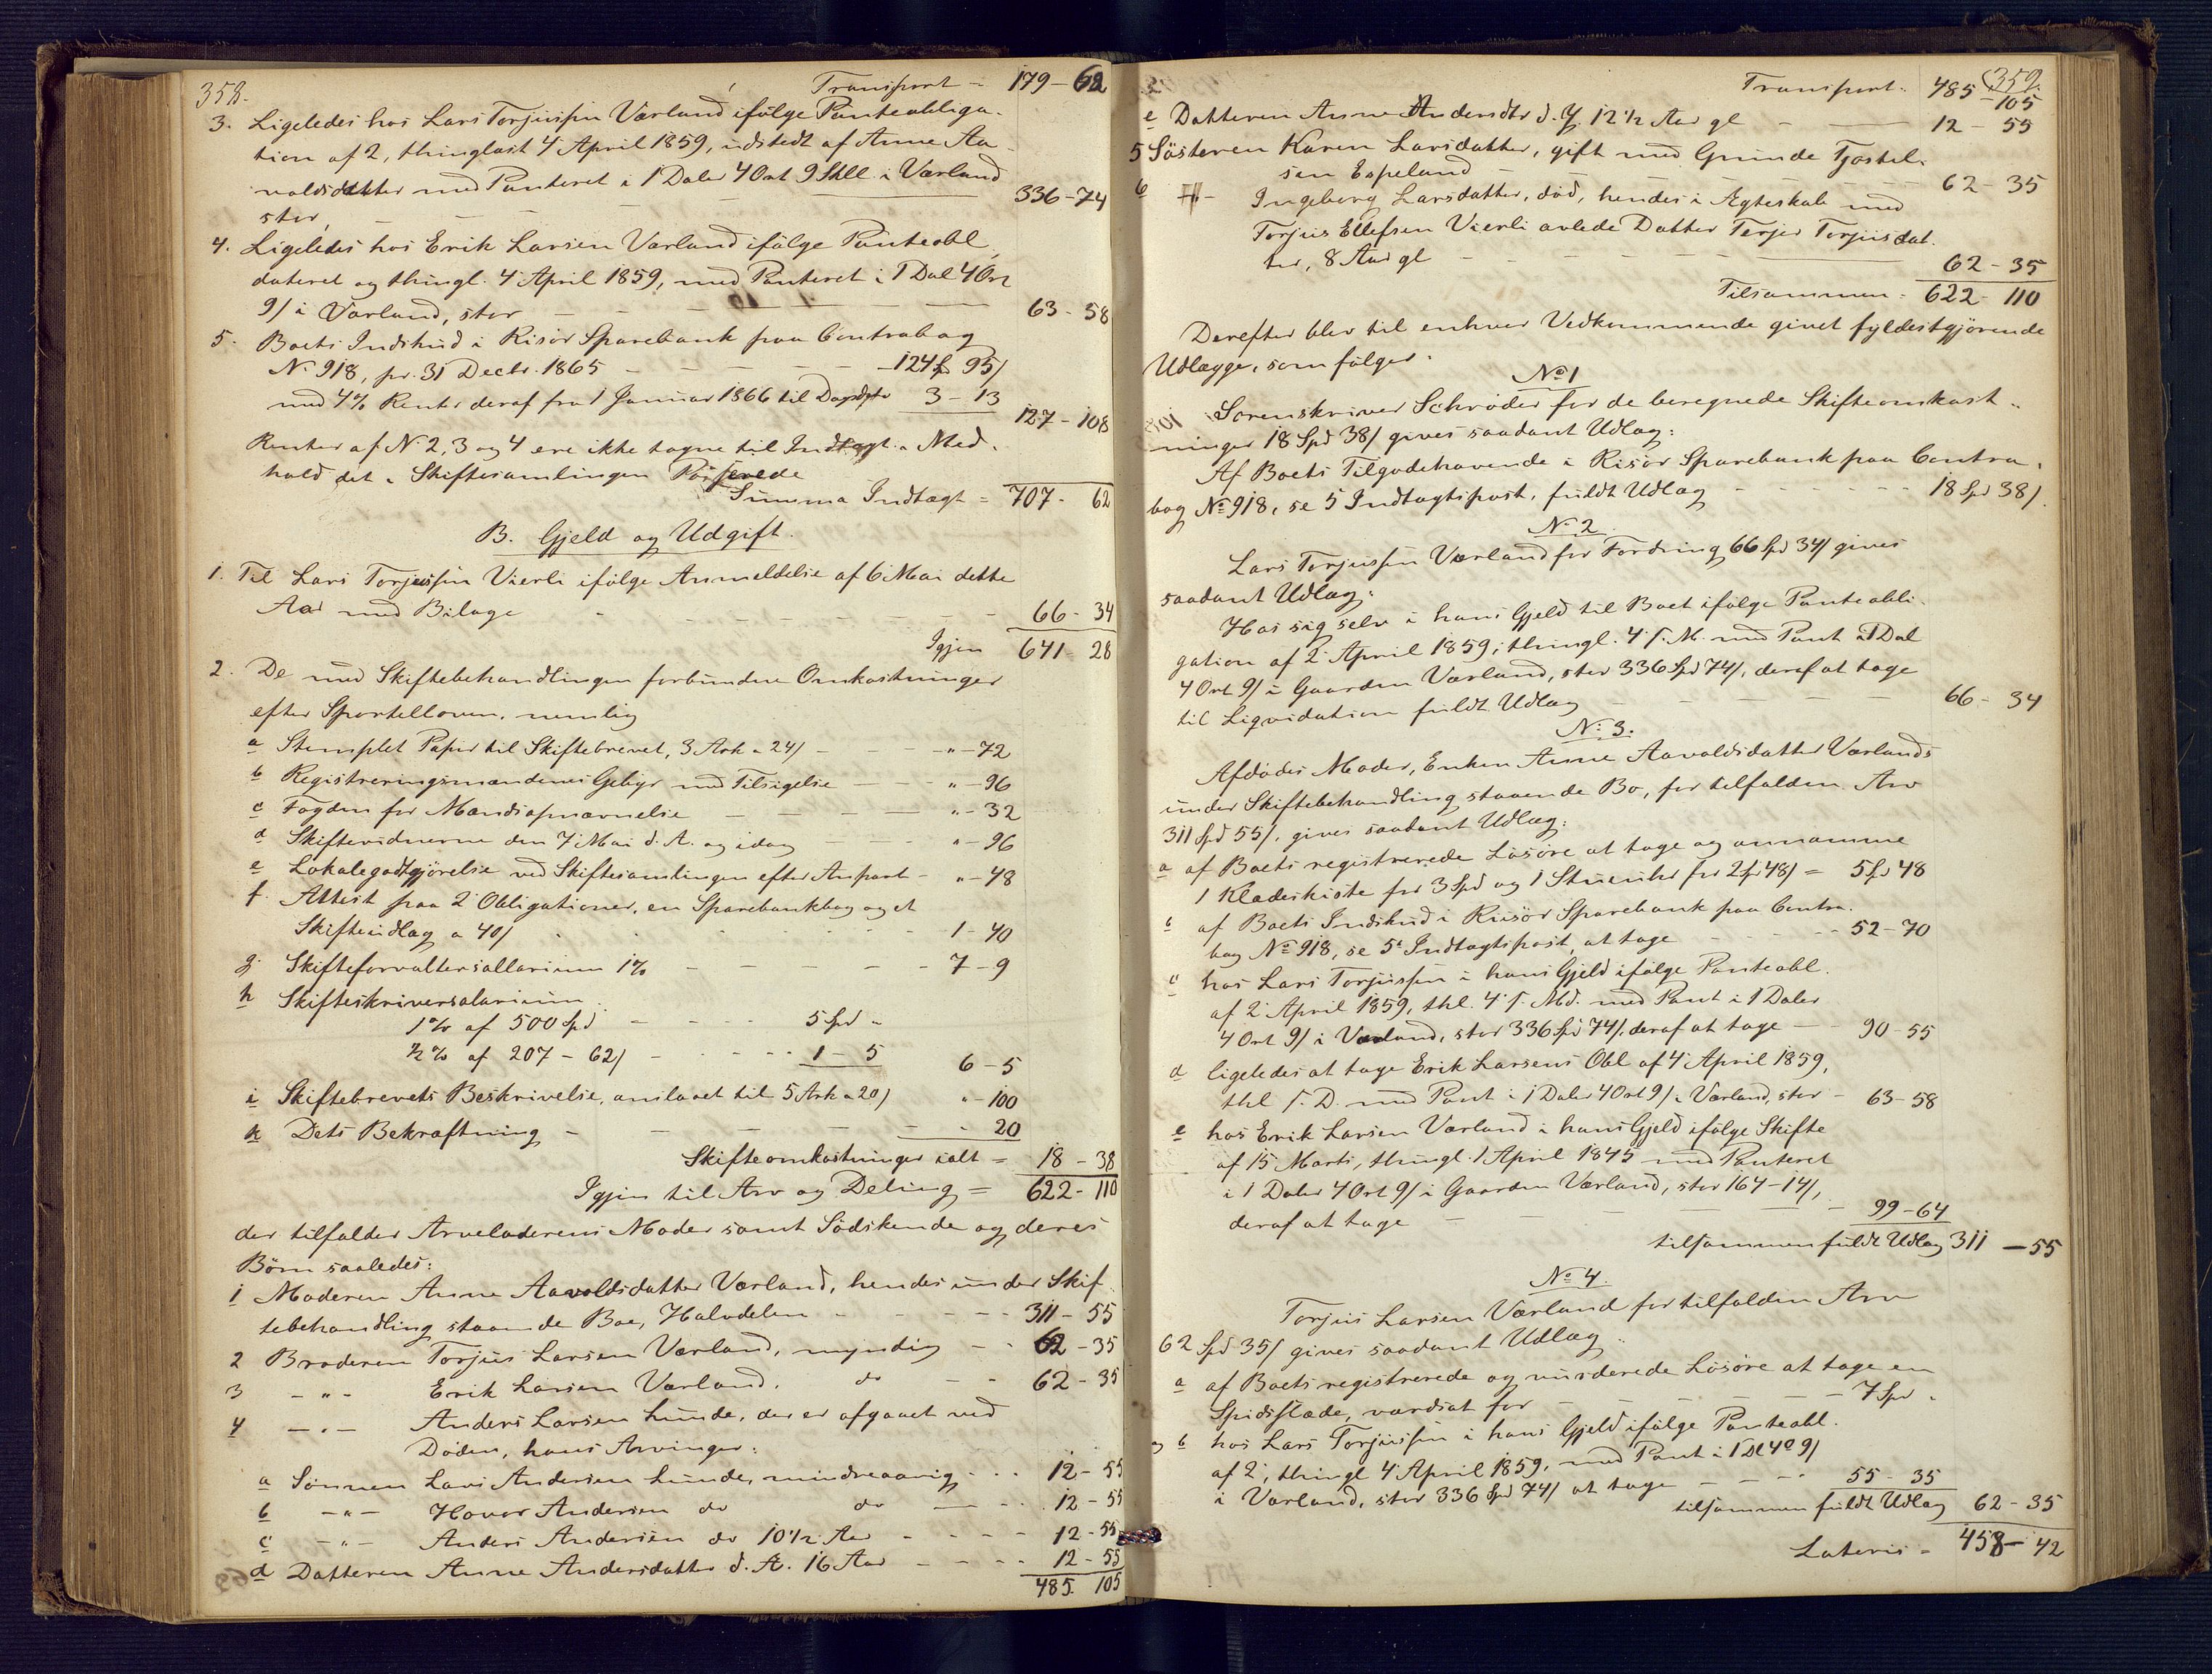 358.
Transport = 179 - 62
3. Ligeledes hos Lars Torjussen Værland ifølge Panteobliga-
tion af 2, thinglæst 4 April 1859, udstedt af Anne Aa-
valdsdatter med Panteret i 1 Daler 4 Ort 9 Skll i Værland
stor, 336 - 74
4. Ligeledes hos Erik Larsen Værland ifølge Panteobl.
dateret og thingl. 4 April 1859, med Panteret i 1 Dal 4 Ort
9/ i Værland, stor 63 - 58
5. Boets Indskud i Risør Sparebank paa Contrabog
No 918, pr. 31 Decbr. 1865 124 Spd 95/
med 4% Renter deraf fra 1 Januar 1866 til Dags dato 3 - 13
127 - 108
Renter af No 2, 3 og 4 ere ikke tagne til Indtægt i Med-
hold det i Skiftesamlingen Passerede
Summa Indtægt = 707 - 62
B. Gjeld og Udgift.
1. Til Lars Torjussen Vierli ifølge Anmeldelse af 6 Mai dette
Aar med Bilage 66 - 34
Igjen 641 - 28
2. De med Skiftebehandlingen forbundne Omkostninger
efter Sportelloven, nemlig
a Stemplet Papir til Skiftebrevet, 3 Ark a 24/ " - 72
b Registreringsmændenes Gebyr med Tilsigelse " - 96
c Fogden for Mændsopnævnelse " - 32
d Skiftevidnerne den 7 Mai d. A. og idag " - 96
e Lokalegodtgjørelse ved Skiftesamlingen efter Anpart " - 48
f. Attest paa 2 Obligationer, en Sparebankbog og et
Skifteudlæg a 40/ 1 - 40
g. Skifteforvaltersallarium 1% 7 - 9
h Skifteskriversalarium
1% af 500 Spd 5 Spd "
½% af 207 - 62/ 1 - 5 6 - 5
i Skiftebrevets Beskrivelse, anslaaet til 5 Ark a 20/ " - 100
k Dets Bekræftning " 20
Skifteomkostninger ialt = 18 - 38
Igjen til Arv og Deling = 622 - 110
der tilfalder Arveladerens Moder samt Södskende og deres
Børn saaledes:
1 Moderen Anne Aavoldsdatter Værland, hendes under Skif-
tebehandling staaende Boe, Halvdelen 311 - 55
2 Broderen Torjus Larsen Værland, myndig 62 - 35
3 - " - Erik Larsen Værland, do 62 - 35
4 - " - Anders Larsen Lunde, der er afgaaet ved
Døden, hans Arvinger:
a Sønnen Lars Andersen Lunde, mindreaarig 12 - 55
b - " - Hovor Andersen do do 12 - 55
c - " - Anders Andersen do 10½ Aar 12 - 55
d Datteren Anne Andersdatter d. Æ. 16 Aar 12 - 55
485. 105
359.
Transport. 485 - 105
e Datteren Anne Andersdtr d. Y. 12½ Aar gl 12 - 55
5 Søsteren Karen Larsdatter, gift med Gunde Tjostel-
sen Espeland 62 - 35
6 - " - Ingeborg Larsdatter, død, hendes i Ægteskab med
Torjus Ellefsen Vierli avlede Datter Terjer Torjusdat-
ter, 8 Aar gl 62 - 35
Tilsammen = 622 - 110
Derefter blev til enhver Vedkommende givet fyldestgjørende
Udlægge, som følger:
No 1
Sorenskriver Schrøder for de beregnede Skifteomkost-
ninger 18 Spd 38/ gives saadant Udlæg:
Af Boets Tilgodehavende i Risør Sparebank paa Contra-
bog No 918, se 5 Indtægtspost, fuldt Udlæg 18 Spd 38/.
No 2.
Lars Torjussen Værland for Fordring 66 Spd 34/ gives
saadant Udlæg:
Hos sig selv i hans Gjeld til Boet ifølge Panteobli-
gation af 2 April 1859, thingl. 4 s. M. med Pant i 1 Dal
4 Ort 9/ i Gaarden Værland, stor 336 Spd 74/, deraf at tage
til Liqvidation fuldt Udlæg 66 - 34
No 3.
Afdødes Moder, Enken Anne Aavoldsdatter Værlands
under Skiftebehandling staaende Bo, for tilfalden Arv
311 Spd 55/, gives saadant Udlæg:
a af Boets registrerede Løsøre at tage og annamme
1 Klædeskiste for 3 Spd og 1 Stueuhr for 2 Spd 48/ = 5 Spd 48
b af Boets Indskud i Risør Sparebank paa Contra-
bog No 918, se 5te Indtægtspost, at tage 52 - 70
c hos Lars Torjussen i hans Gjeld ifølge Panteobl.
af 2 April 1859, thl. 4 s. Md. med Pant i 1 Daler
4 Ort 9/ i Værland, stor 336 Spd 74/, deraf at tage 90 - 55
d ligeledes at tage Erik Larsens Obl af 4 April 1859,
thl s. D. med Pant i 1 Daler 4 Ort 9/ i Værland, stor 63 - 58
e hos Erik Larsen Værland i hans Gjeld ifølge Skifte
af 15 Marts, thingl. 1 April 1845 med Panteret
i 1 Daler 4 Ort 9/ i Gaarden Værland, stor 164 - 14/,
deraf at tage 99 - 64
tilsammen fuldt Udlæg 311 - 55
No 4.
Torjus Larsen Værland for tilfalden Arv
62 Spd 35/ gives saadant Udlæg:
a af Boets registrerede og vurderede Løsøre at tage en
Spidsslæde, værdsat for 7 Spd "
og b hos Lars Torjussen i hans Gjeld ifølge Panteobl.
af 2, thingl 4 April 1859, med Pant i 1 Dl 4 O 9/
i Værland, stor 336 Spd 74/ at tage 55 - 35
tilsammen fuldt Udlæg 62 - 35
Lateris = 458 - 42